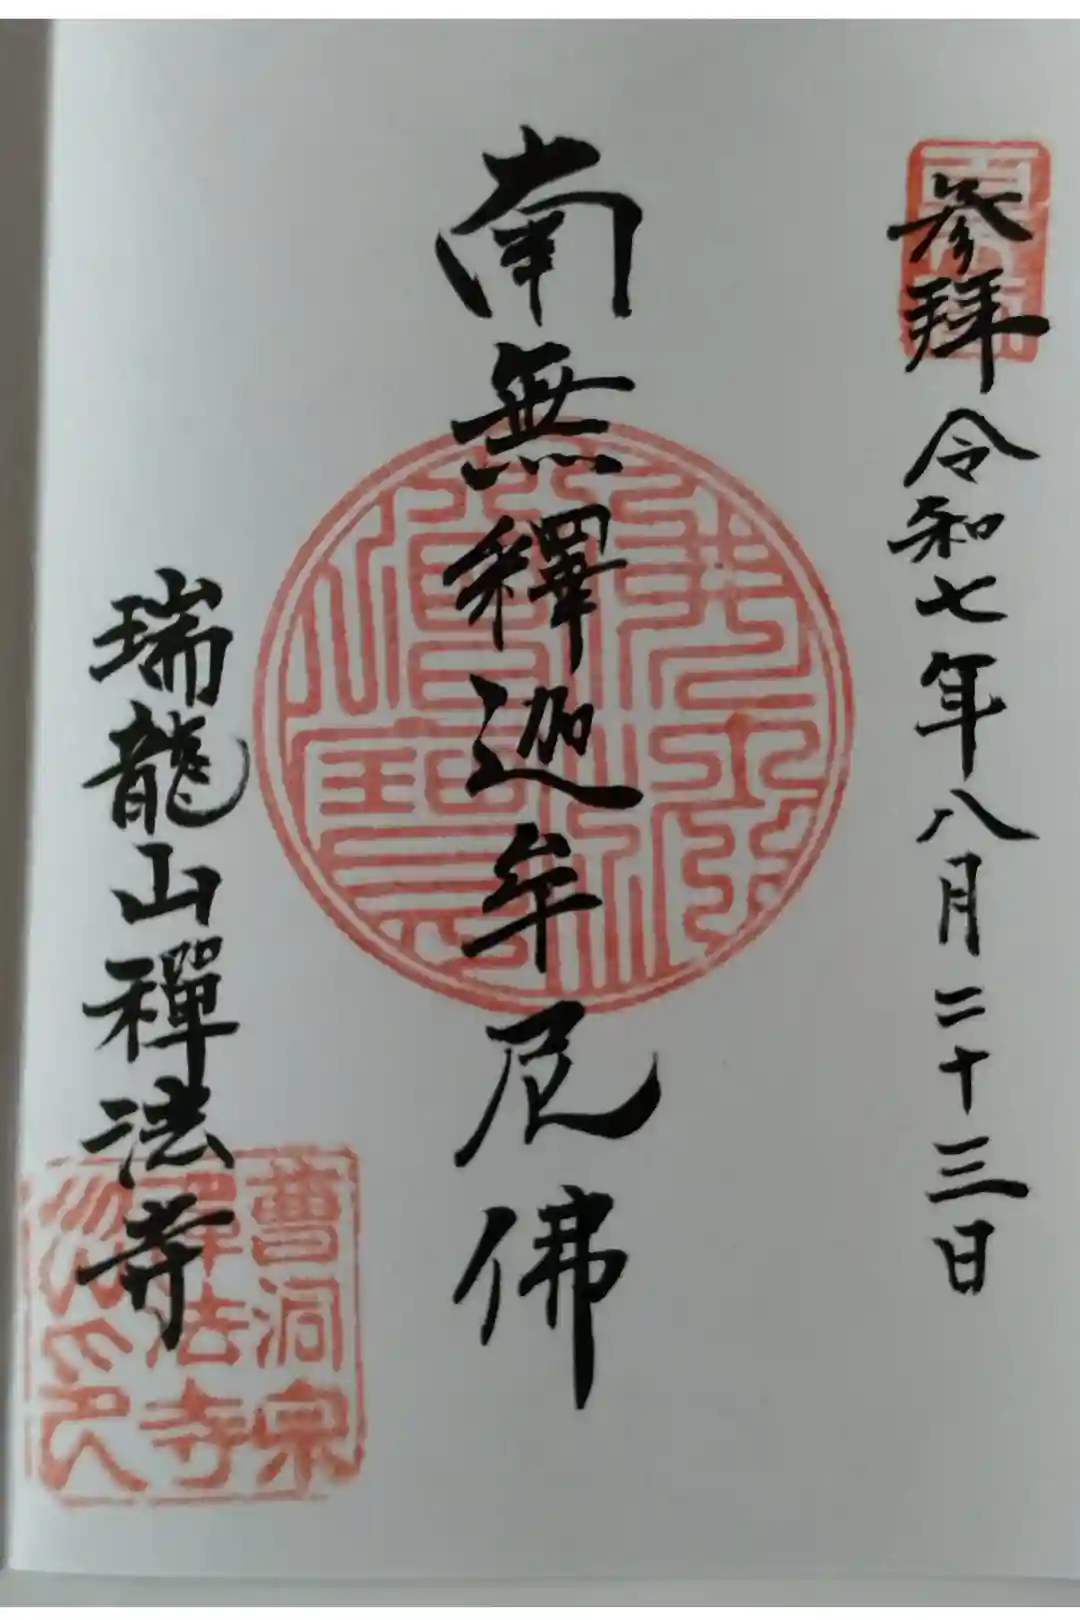 参拜 令和七年八月二十三日
南無釋迦牟尼佛
瑞龍山禪法寺
曹洞宗
禪法寺